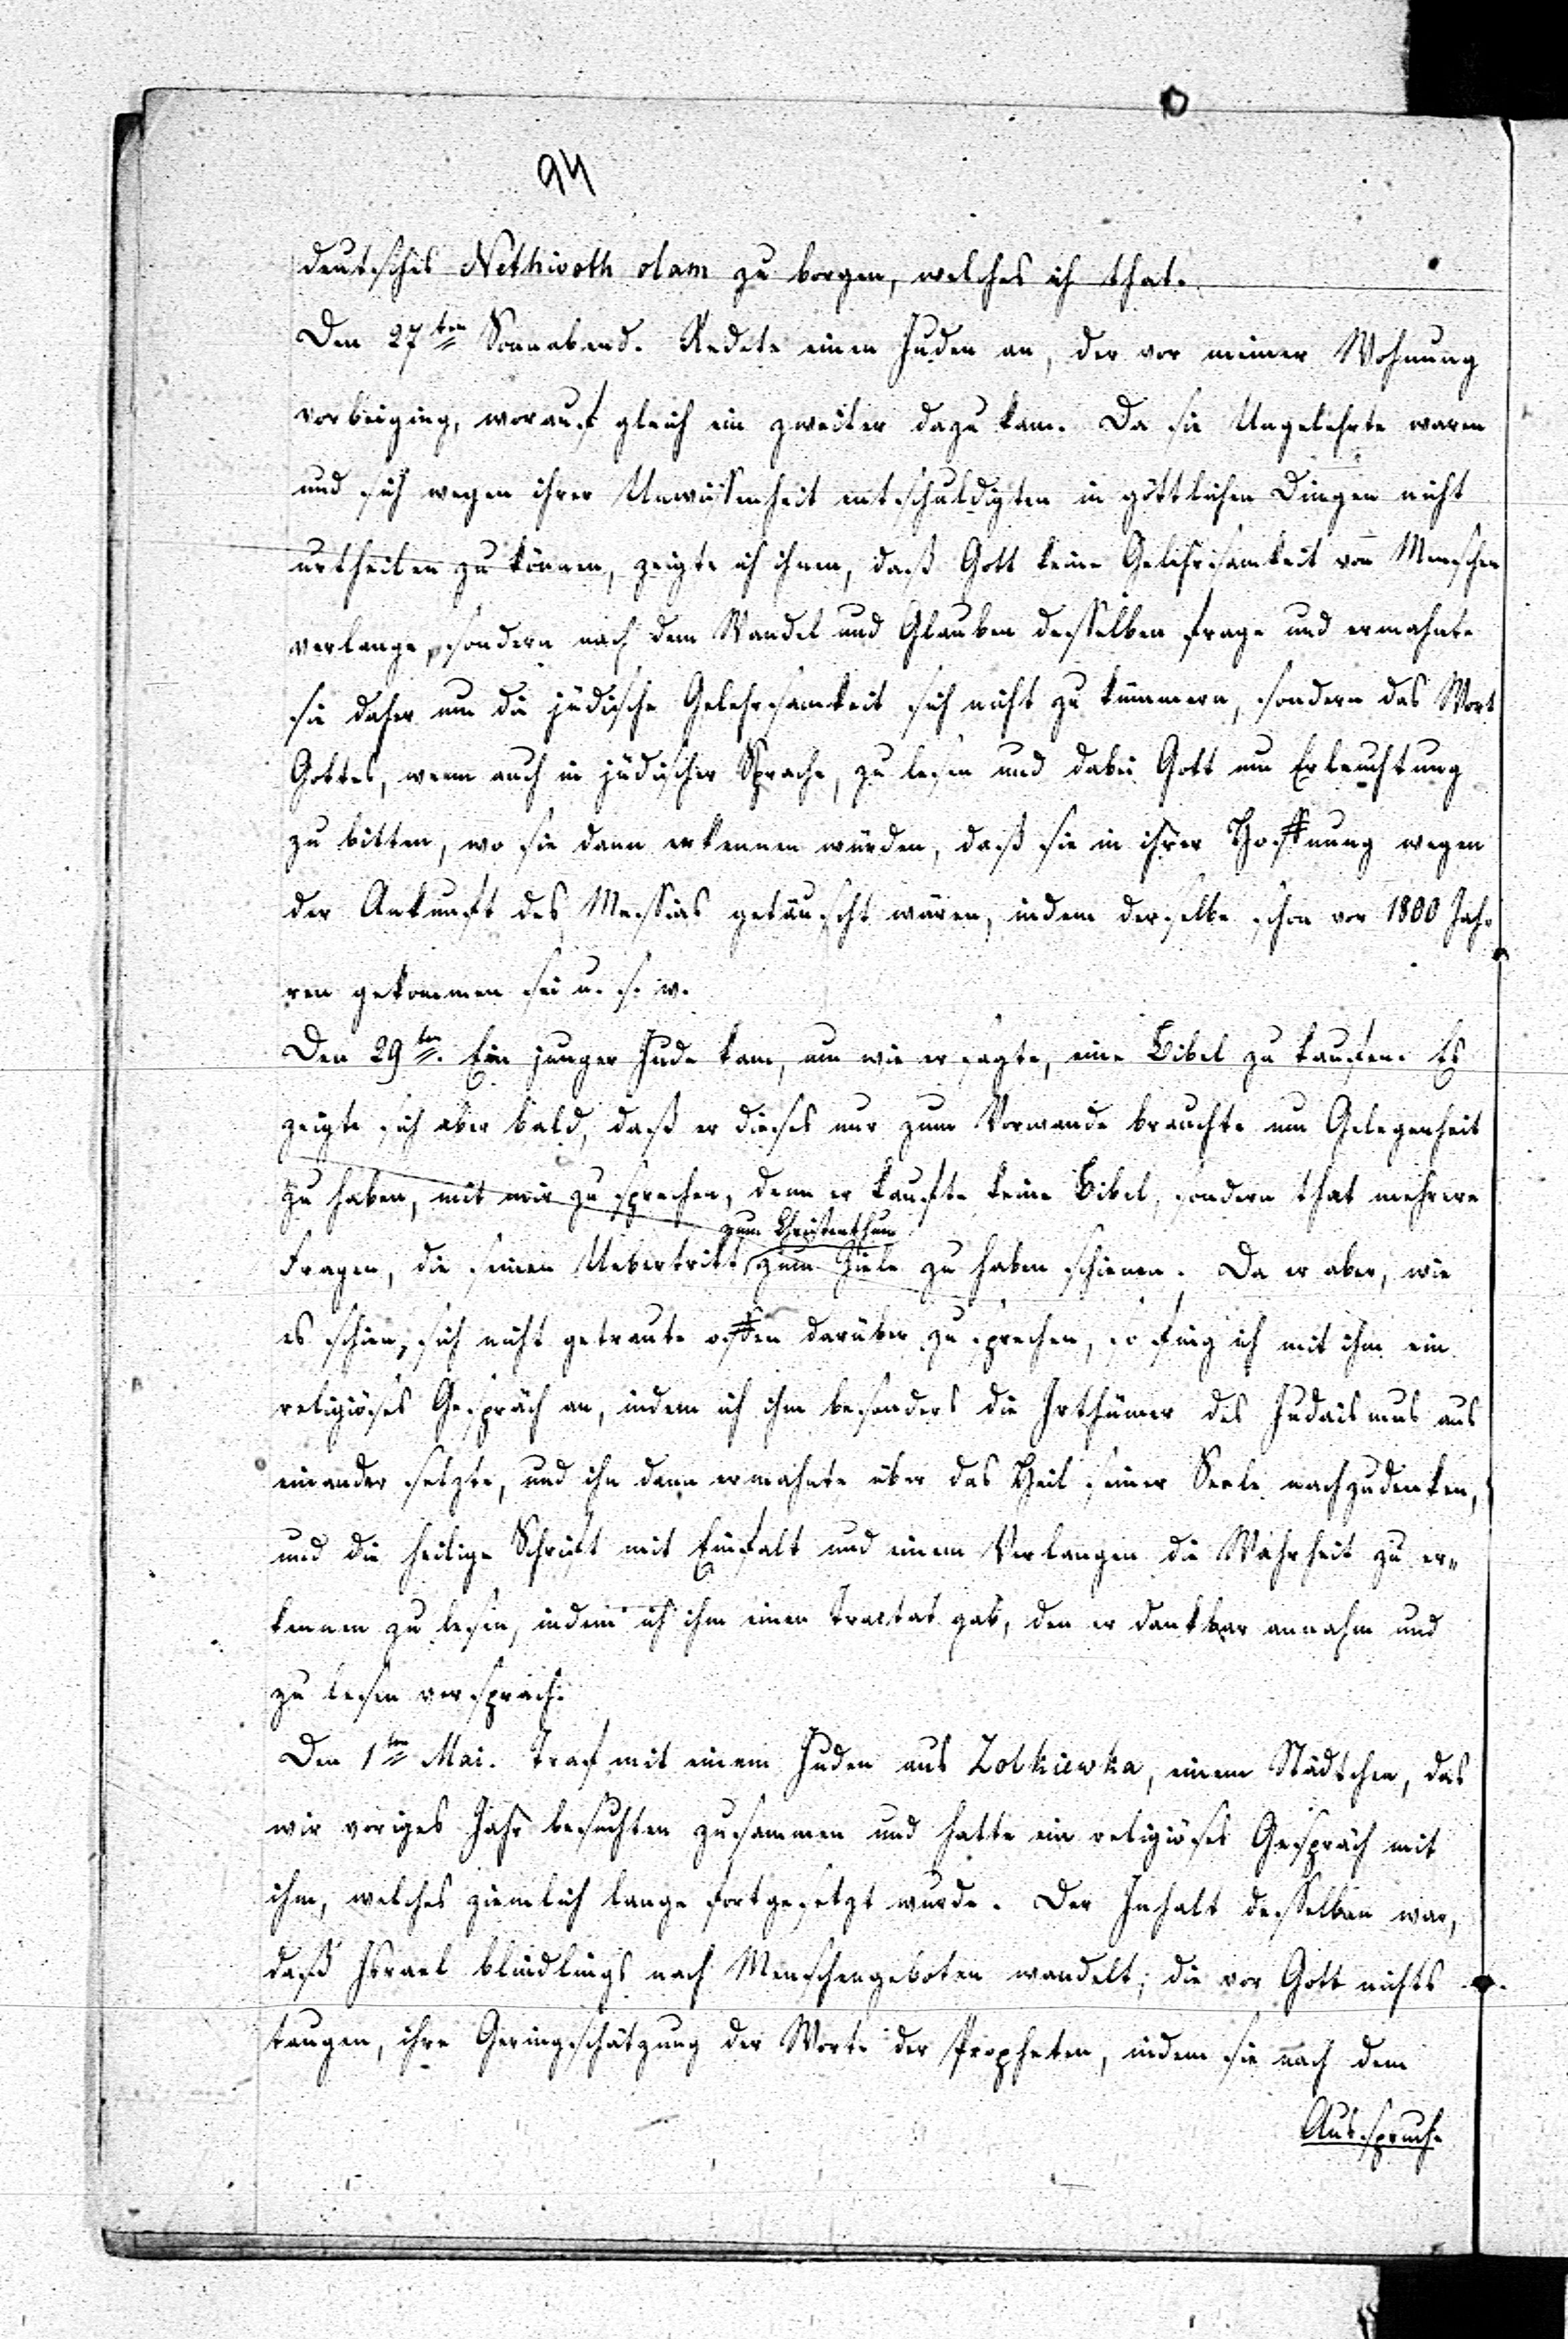 94
deutsches Nethivoth olam zu borgen, welches ich that.
Den 27ten Sonnabend. Redete einen Juden an, der vor meiner Wohnung
vorbeiging, worauf gleich ein zweiter dazu kam. Da sie Ungelehrte waren
und sich wegen ihrer Unwissenheit entschuldigten in göttlichen Dingen nicht
urtheilen zu können, zeigte ich ihnen, daß Gott keine Gelehrsamkeit von Menschen
verlange, sondern nach dem Wandel und Glauben desselben frage und ermahnte
sie daher um die jüdische Gelehrsamkeit sich nicht zu kümmern, sondern das Wort
Gottes, wenn auch in jüdischer Sprache, zu lesen und dabei Gott um Erleuchtung
zu bitten, wo sie dann erkennen würden, daß sie in ihrer Hoffnung wegen
der Ankunft des Messias getäuscht wären, indem derselbe schon vor 1800 Jah-
ren gekommen sei u. s. w.
Den 29ten. Ein junger Jude kam, um wie er sagte, eine Bibel zu kaufen. Es
zeigte sich aber bald, daß er dieses nur zum Vorwande brauchte um Gelegenheit
zu haben, mit mir zu sprechen, denn er kaufte keine Bibel, sondern that mehrere
zum Christenthum
Fragen, die seinen Uebertritt zum Ziele zu haben schienen. Da er aber, wie
es schien, sich nicht getraute offen darüber zu sprechen, so fing ich mit ihm ein
religiöses Gespräch an, indem ich ihm besonders die Irthümer des Judaismus aus
einander setzte, und ihn dann ermahnte über das Heil seiner Seele nachzudenken,
und die heilige Schrift mit Einfalt und einem Verlangen die Wahrheit zu er-
kennen zu lesen, indem ich ihm einen Tractat gab, den er dankbar annahm und
zu lesen versprach.
Den 1ten Mai. Traf mit einem Juden aus Zolkiewka, einem Städtchen, das
wir voriges Jahr besuchten zusammen und hatte ein religiöses Gespräch mit
ihm, welches ziemlich lange fortgesetzt wurde. Der Inhalt desselben war,
daß Israel blindlings nach Menschengeboten wandelt; die vor Gott nichts
taugen, ihre Geringschätzung der Worte der Propheten, indem sie nach dem
Ausspruche